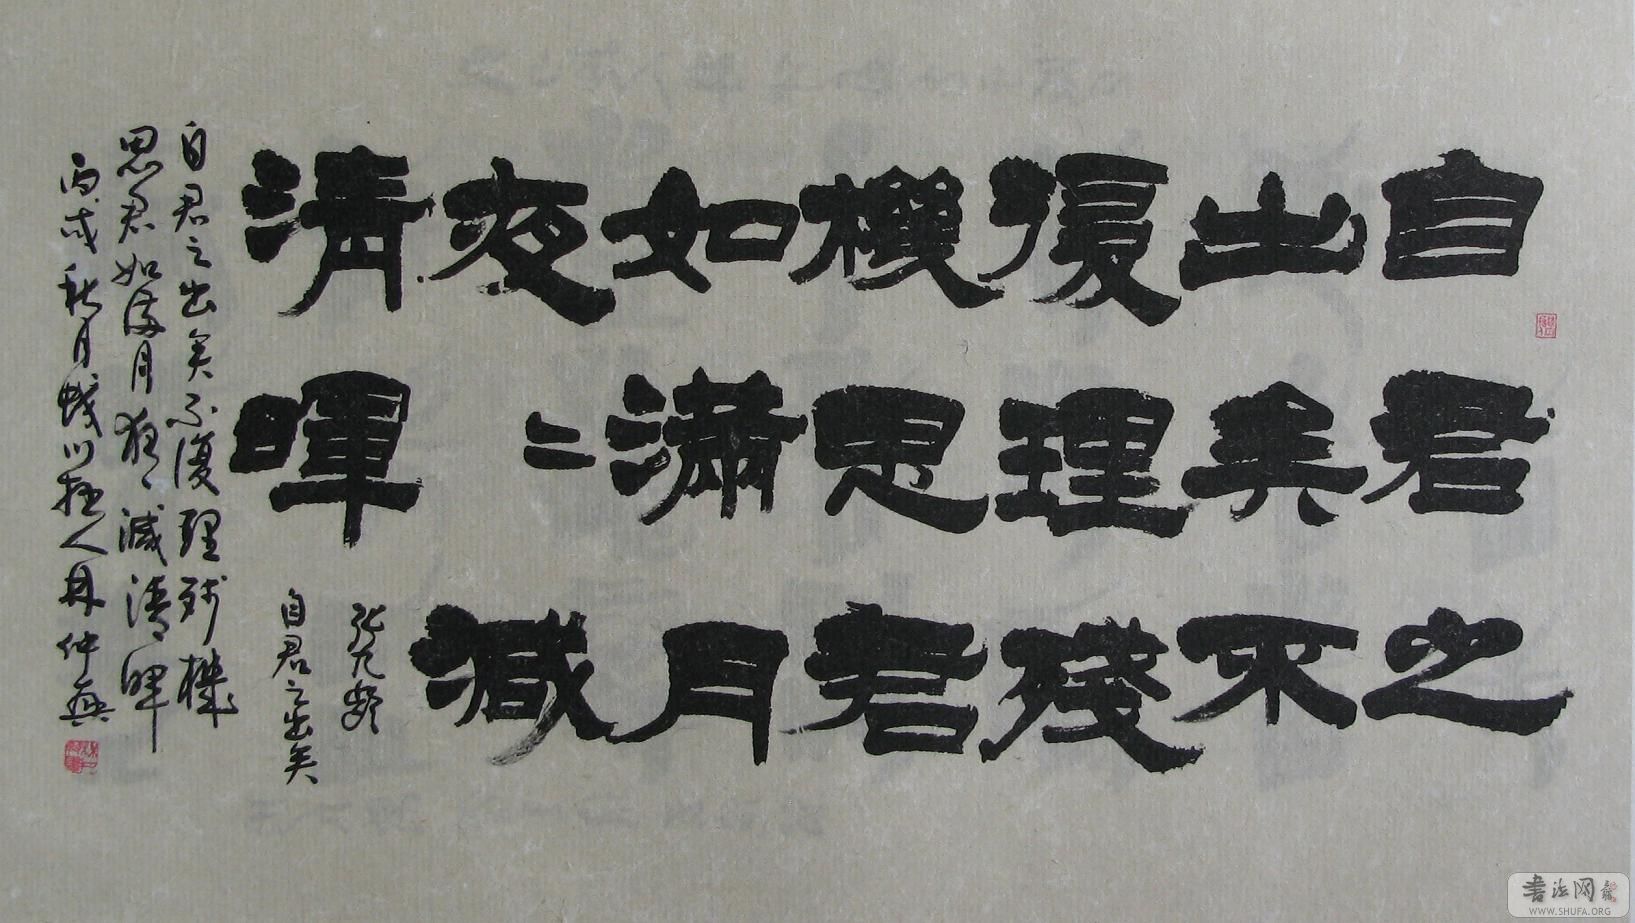 自君之
出矣不
復理殘
機思君
如滿月
夜〻減
清暉
張九齡
自君之出矣
自君之出矣不復理殘機
思君如滿月夜〻減清暉
丙戌秋月蛟川人林仲興
書法网
WWW.SHUFA.ORG